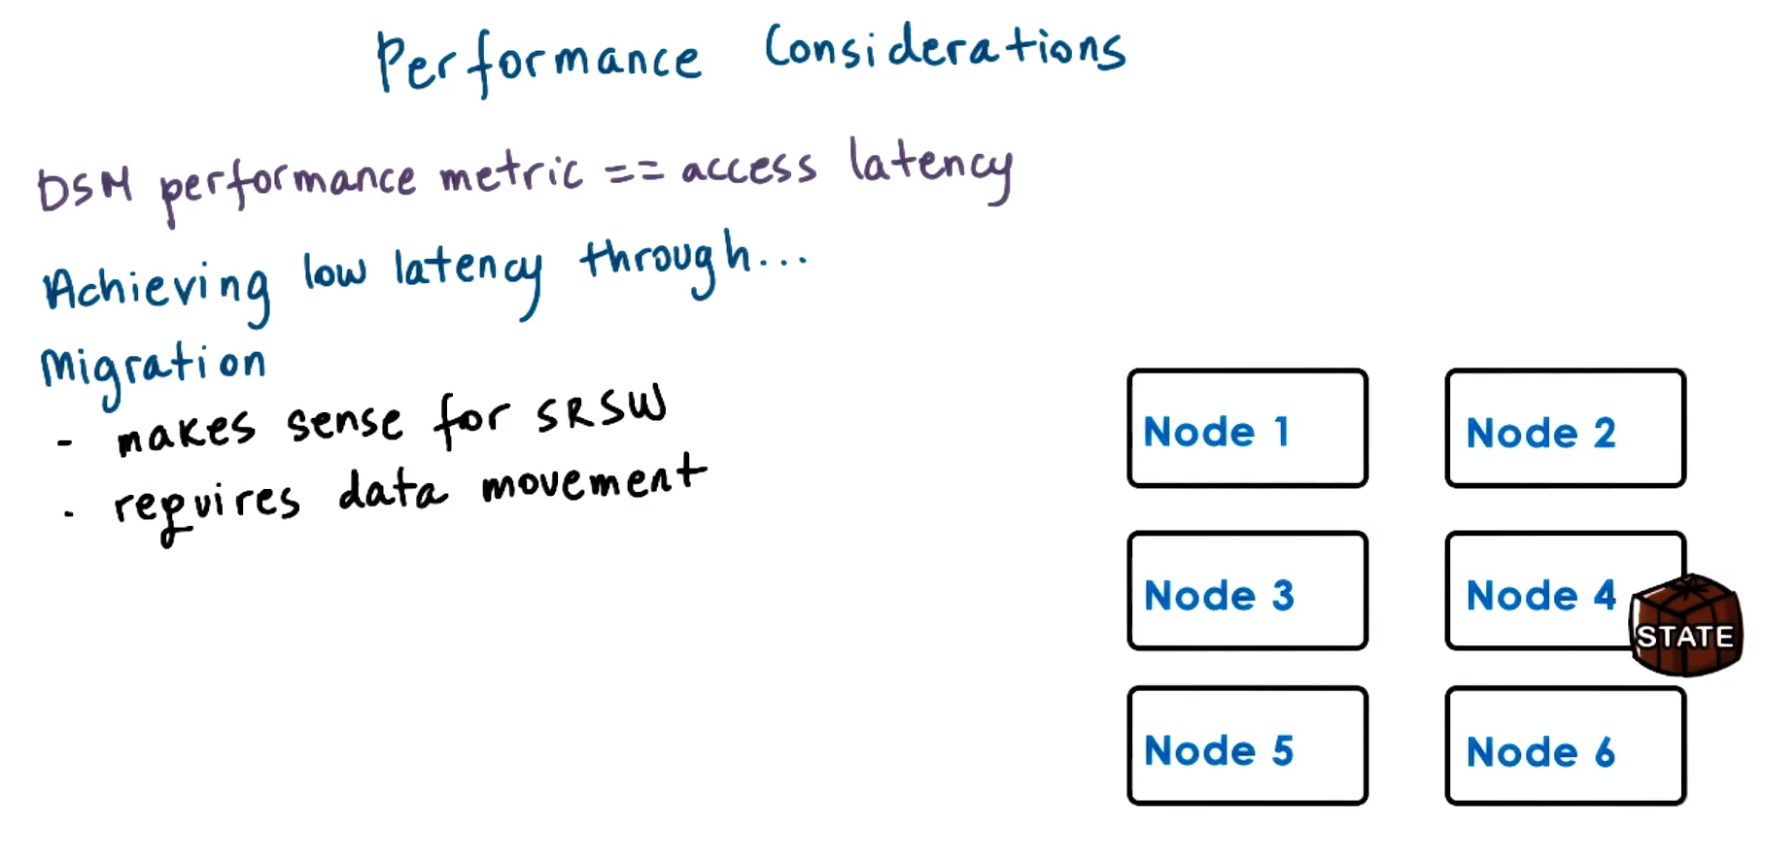 Performance Considerations
DSM performance metric == access latency
Achieving low latency through...
Migration
- makes sense for SRSW
- requires data movement
Node 1
Node 2
Node 3
Node 4
STATE
Node 5
Node 6